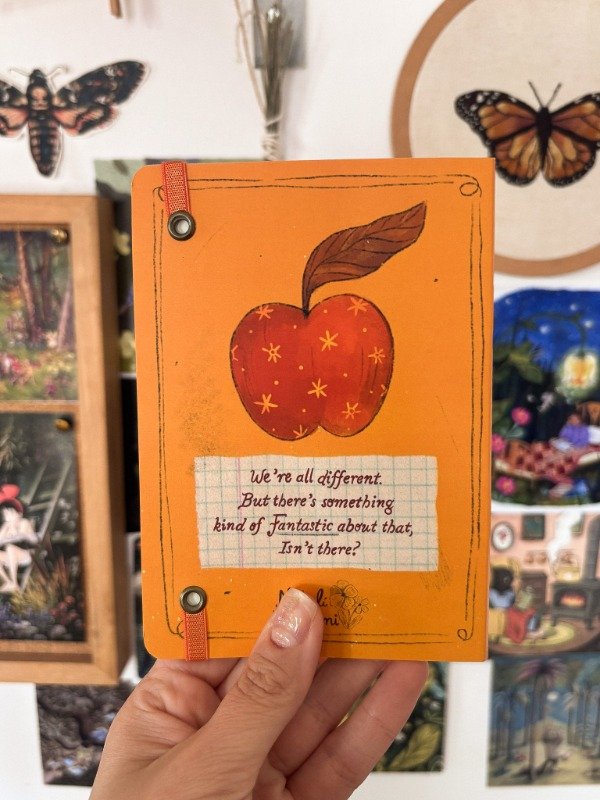 We're all different.
But there's something
kind of Fantastic about that,
Isn't there?